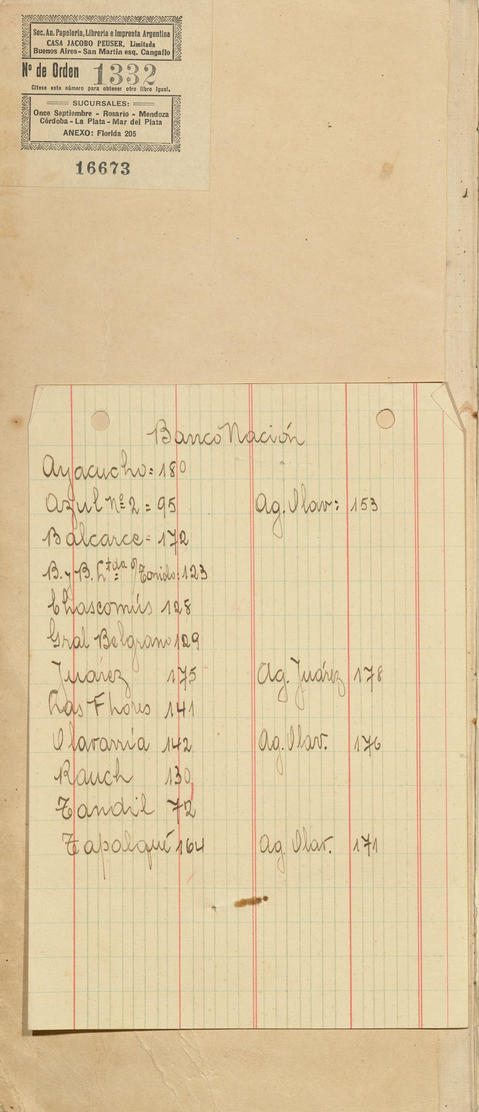 Soc. An. Papelería, Librería e Imprenta Argentina
CASA JACOBO PEUSER, Limitada
Buenos Aires - San Martín esq. Cangallo
Nº de Orden 1332
Cítese este número para obtener otro libro igual.
SUCURSALES:
Once Septiembre - Rosario - Mendoza
Córdoba - La Plata - Mar del Plata
ANEXO: Florida 205
16673
Banco Nación
Ayacucho = 180
Azul nº 2 = 95 Ag. Olav: 153
Balcarce = 172
B. y B. Ltda 123
Chascomús 128
Gral Belgrano 129
Juárez 175 Ag. Juárez 178
Las Flores 141
Olavarría 142 Ag. Olav. 176
Rauch 130
Tandil 72
Tapalqué 164 Ag. Olav. 171